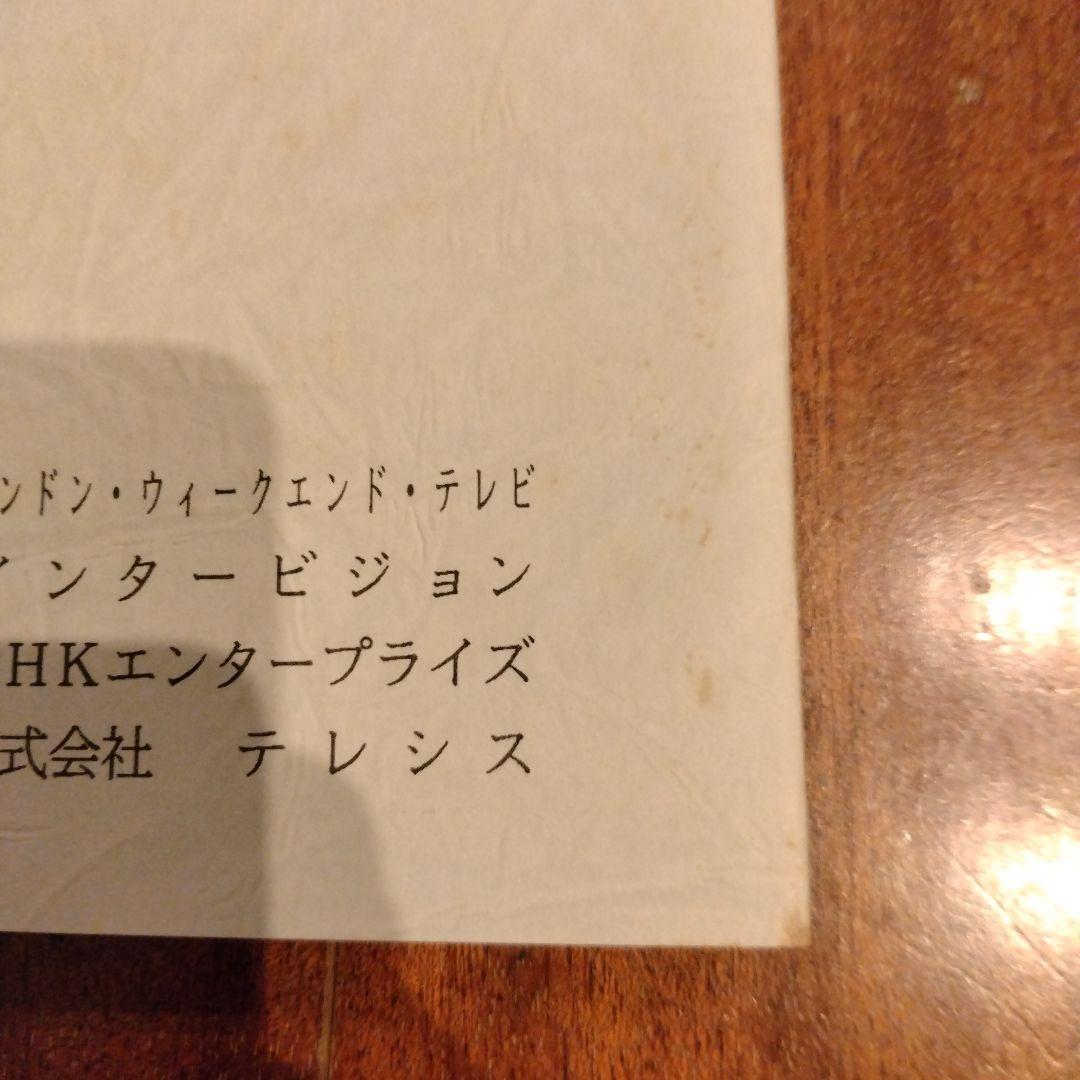 ンドン・ウィークエンド・テレビ
インタービジョン
HKエンタープライズ
式会社 テレシス